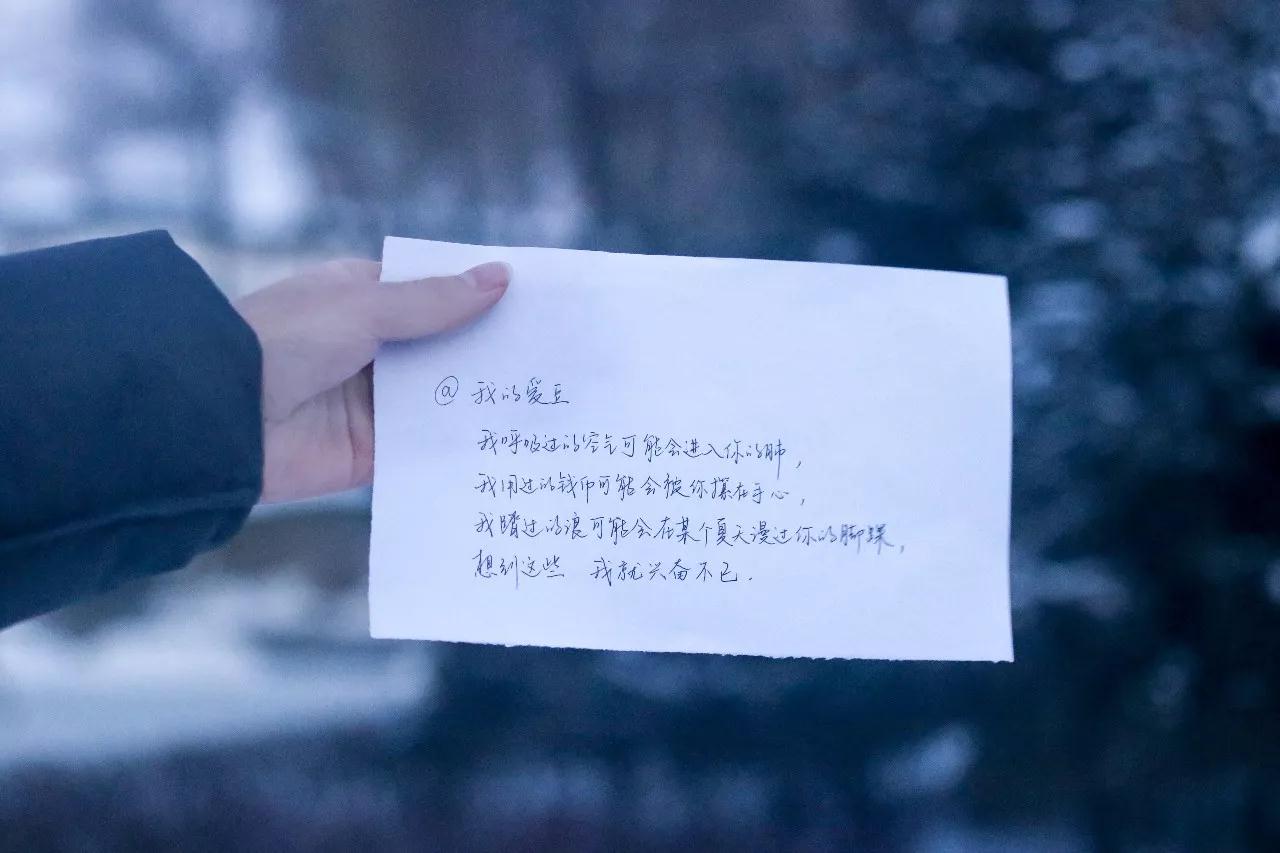 @ 我的爱豆
我呼吸过的空气可能会进入你的肺，
我用过的钱币可能会被你攥在手心，
我蹚过的浪可能会在某个夏天漫过你的脚踝，
想到这些 我就兴奋不已.